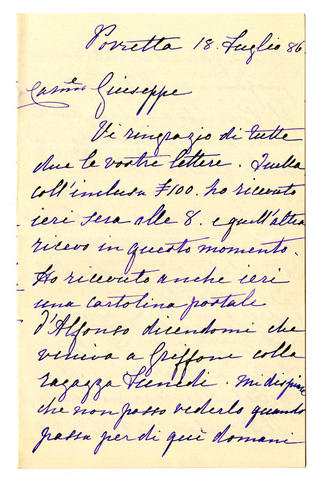 Porretta 18 Luglio 86
Carmo Giuseppe
Vi ringrazio di tutte
due le vostre lettere. Quella
coll'inclusa £100. ho ricevuto
ieri sera alle 8. e quell'altra
ricevo in questo momento.
Ho ricevuto anche ieri
una cartolina postale
d'Alfonso dicendomi che
veniva a Griffone colla
ragazza Lunedi. Mi dispiace
che non posso vederlo quando
passa per di qui domani